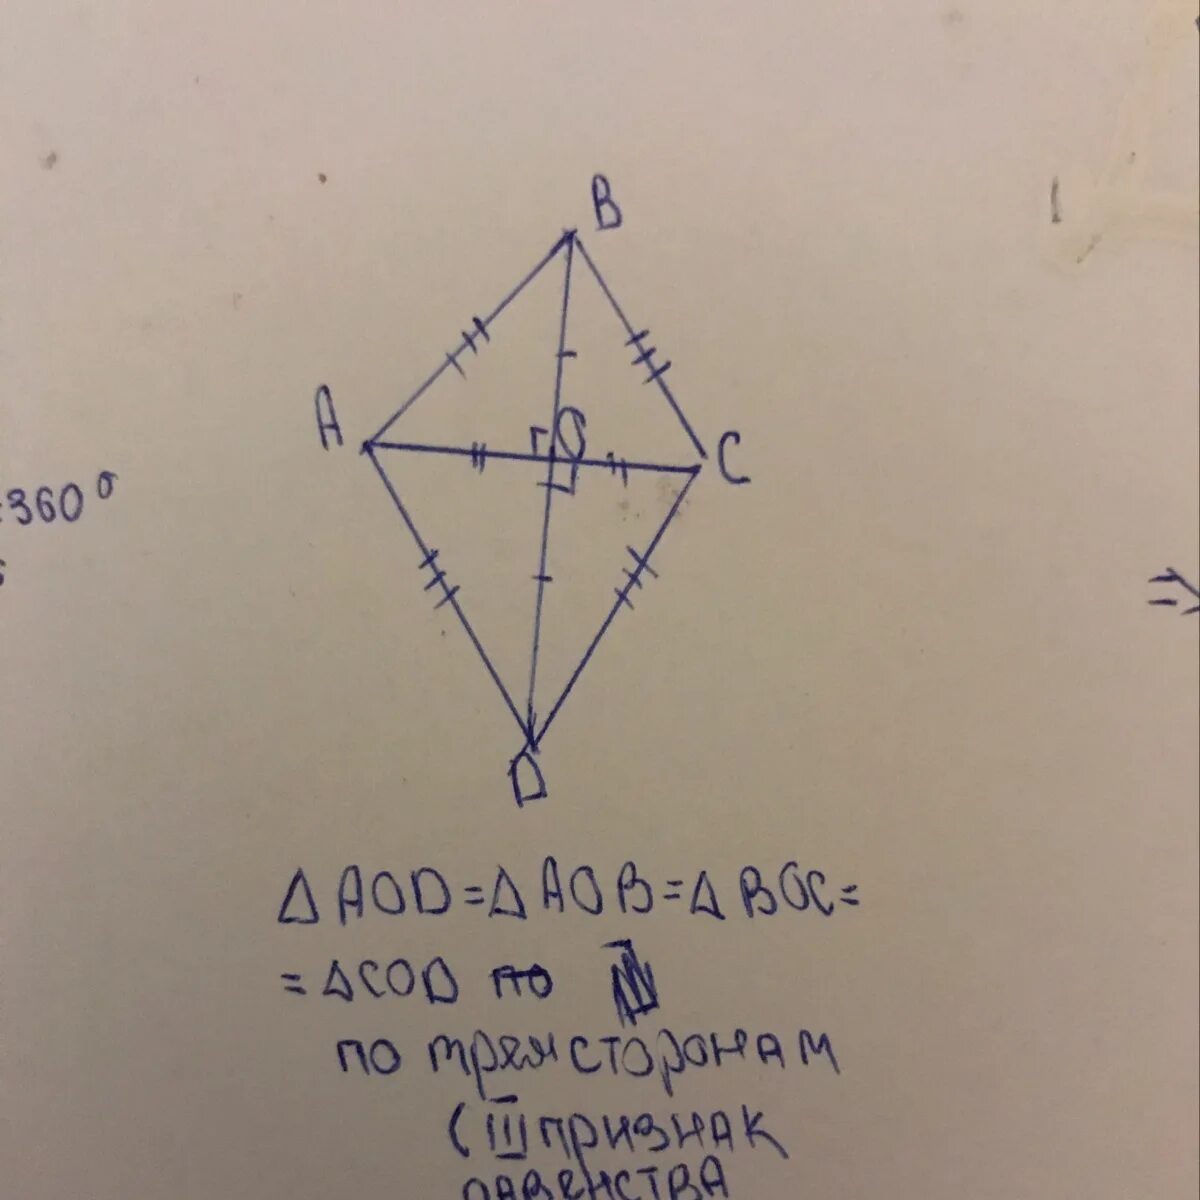 B
A
O
C
=360°
D
△ AOD = △ AOB = △ BOC =
= △COD по
по трем сторонам
( III признак
равенства